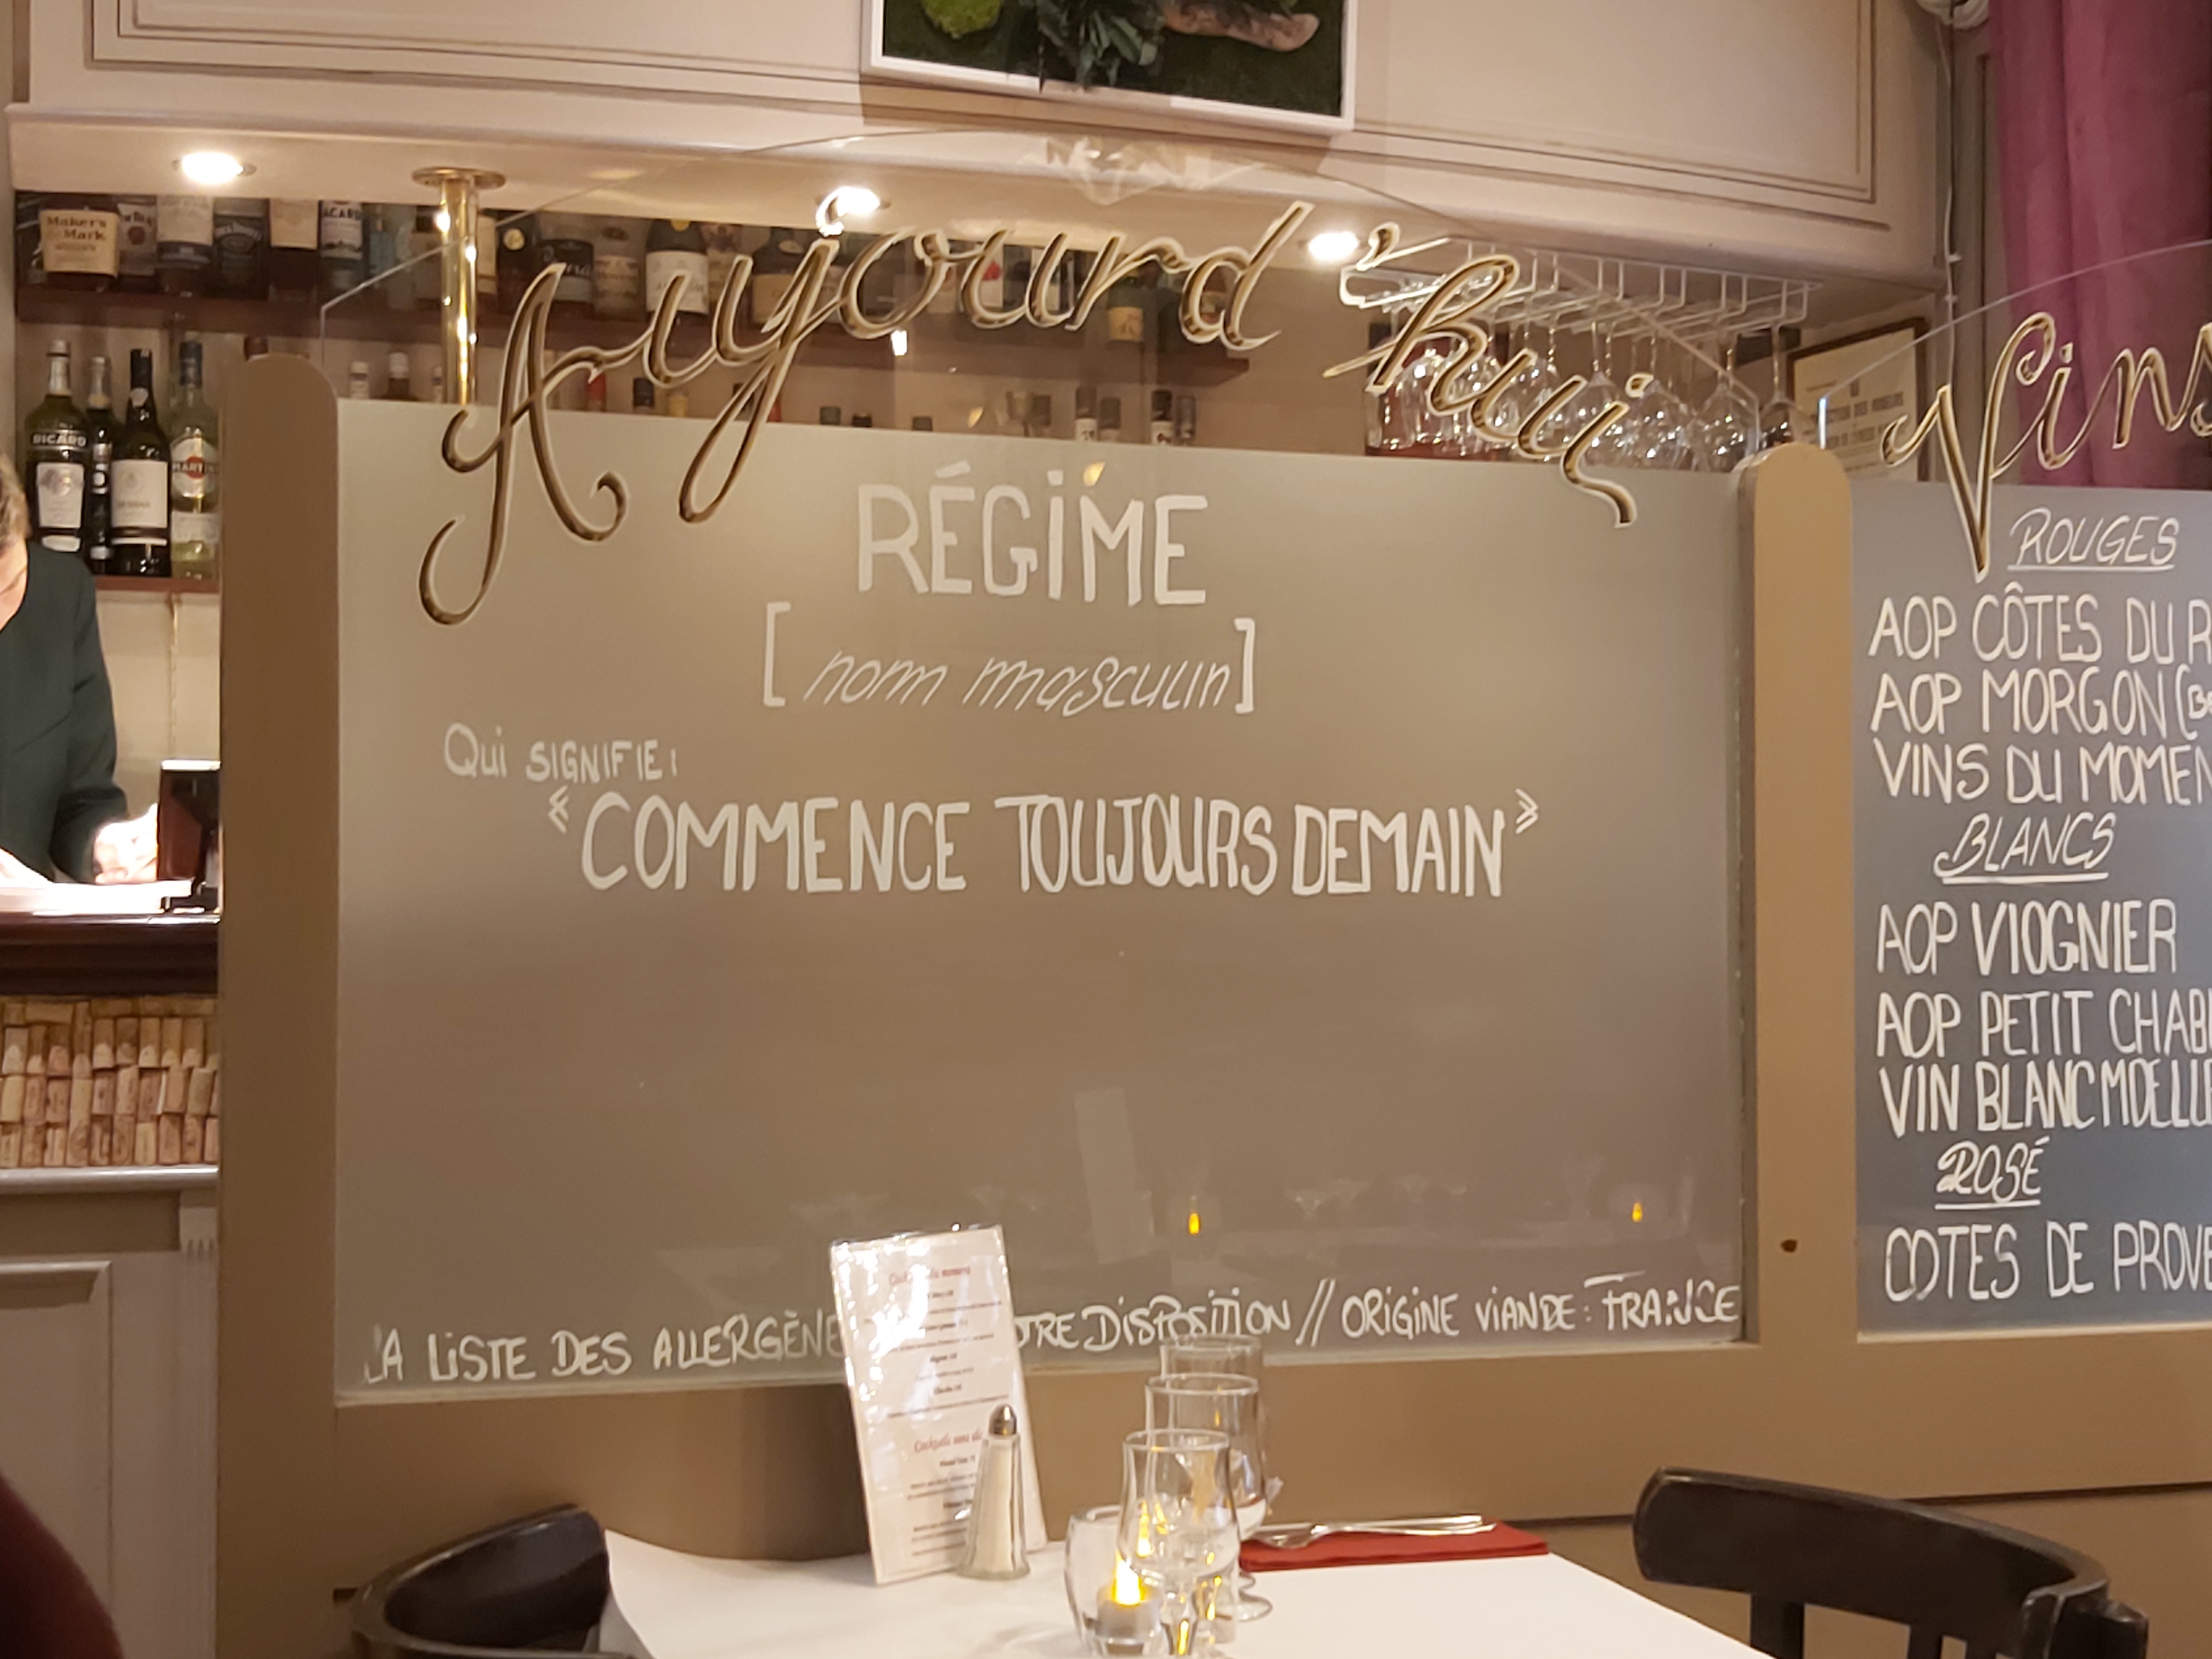 Aujourd'hui
RÉGIME
[nom masculin]
Qui SIGNIFIE:
«COMMENCE TOUJOURS DEMAIN»
LA LISTE DES ALLERGÈNE DISPOSITION // ORIGINE VIANDE: FRANCE
Vins
ROUGES
AOP CÔTES DU R
AOP MORGON (B
VINS DU MOMEN
BLANCS
AOP VIOGNIER
AOP PETIT CHABL
VIN BLANC MOELLE
ROSÉ
COTES DE PROVE
Maker's
Mark
RICARD
MARTI
Cocktails